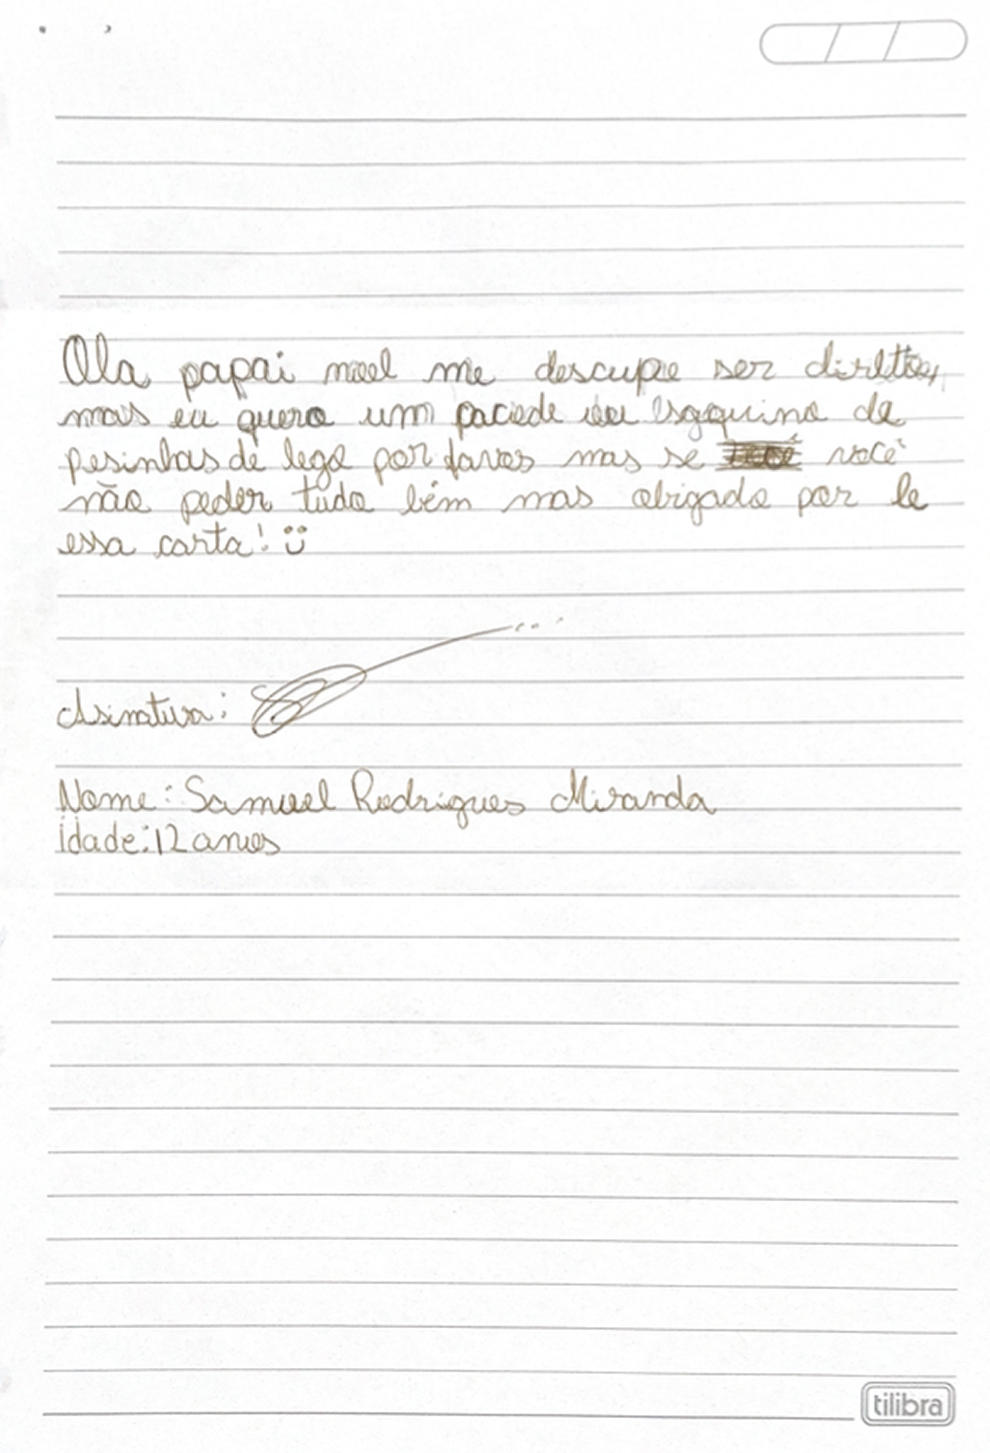 Ola papai noel me descupe ser
mas eu quero um pacode ou saquino de
pesinhas de lego por favor mas se você
não poder tudo bém mas obrigado por le
essa carta! ü
Asinatura:
Nome: Samuel Rodrigues Miranda
idade: 12 anos
tilibra